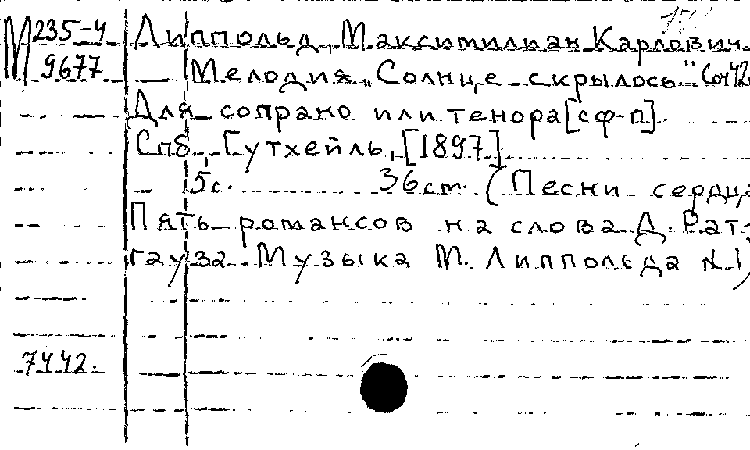 М 235-4 Липпольд, Максимилиан Карлович.
9677 Мелодия „Солнце скрылось" Соч 42
Для сопрано или тенора [с ф-п].
Спб, Гутхейль, [1897]
5 с. 36 cm (Песни сердца
Пять романсов на слова Д. Рат-
гауза. Музыка М. Липпольда №1)
7442.